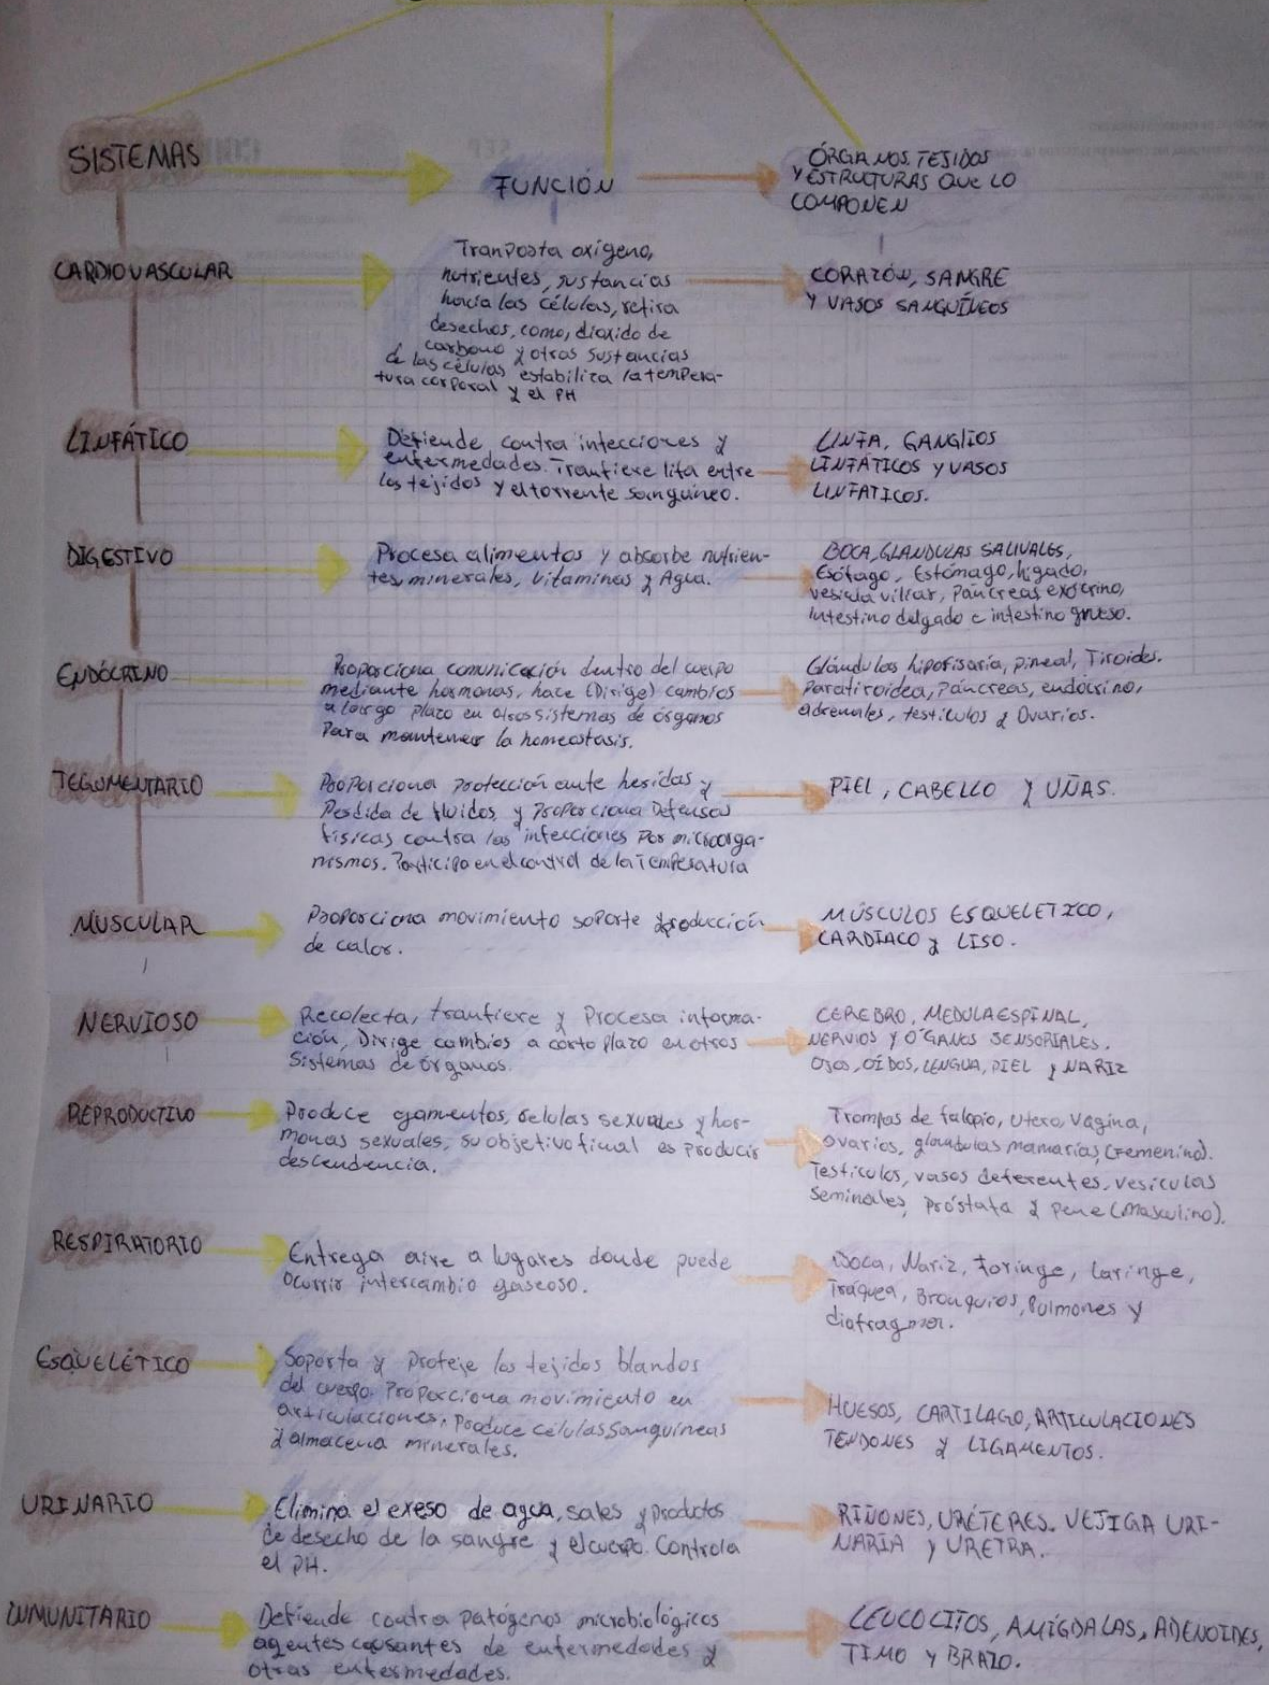 SISTEMAS
FUNCIÓN
ÓRGANOS, TEJIDOS
Y ESTRUCTURAS QUE LO
COMPONEN
CARDIOVASCULAR
Tranposta oxígeno,
nutrientes, sustancias
hacia las células, retira
desechos, como, dioxido de
carbono y otras sustancias
de las células estabiliza la tempera-
tura corporal y el PH
CORAZÓN, SANGRE
Y VASOS SANGUÍNEOS
LINFÁTICO
Defiende contra infecciones y
enfermedades. Tranfiere lifa entre
los tejidos y el torrente sanguíneo.
LINFA, GANGLIOS
LINFÁTICOS Y VASOS
LINFATICOS.
DIGESTIVO
Procesa alimentos y absorbe nutrien-
tes, minerales, vitaminas y Agua.
BOCA, GLANDULAS SALIVALES,
Esófago, Estómago, hígado,
vesicula viliar, páncreas exocrino,
Intestino delgado e intestino grueso.
ENDÓCRINO
Proporciona comunicación dentro del cuerpo
mediante hormonas, hace (Dirige) cambios
a largo plazo en otros sistemas de órganos
Para mantener la homeostasis.
Glándulas hipofisaria, pineal, Tiroides.
Paratiroidea, páncreas, endócrino,
adrenales, testículos y Ovarios.
TEGUMENTARIO
Proporciona protección ante heridas y
Perdida de fluidos, y Proporciona Defensas
físicas contra las infecciones por microorga-
nismos. Participa en el control de la Temperatura
PIEL, CABELLO Y UÑAS.
MUSCULAR
Proporciona movimiento soporte y producción
de calor.
MÚSCULOS ESQUELETICO,
CARDIACO y LISO.
NERVIOSO
Recolecta, tranfiere y Procesa informa-
ción, Dirige cambios a corto plazo en otros
Sistemas de órganos.
CEREBRO, MEDULA ESPINAL,
NERVIOS Y ÓGANOS SENSORIALES.
OJOS, OÍDOS, LENGUA, PIEL y NARIZ
REPRODUCTIVO
Produce gamentos, celulas sexuales y hor-
monas sexuales, su objetivo final es producir
descendencia.
Trompas de falopio, utero, vagina,
ovarios, glandulas mamarias, (Femenino).
Testículos, vasos deferentes, vesiculas
seminales, próstata y pene (Masculino).
RESPIRATORIO
Entrega aire a lugares donde puede
ocurrir intercambio gaseoso.
Boca, Nariz, Faringe, laringe,
Tráquea, Bronquios, Pulmones y
ESQUELÉTICO
Soporta y proteje los tejidos blandos
del cuerpo. Proporciona movimiento en
articulaciones, Produce células sanguíneas
y almacena minerales.
HUESOS, CARTILAGO, ARTICULACIONES
TENDONES y LIGAMENTOS.
URINARIO
Elimina el exeso de agua, sales y productos
de desecho de la sangre y el cuerpo. Controla
el PH.
RIÑONES, URÉTERES, VEJIGA URI-
NARIA y URETRA.
INMUNITARIO
Defiende contra patógenos microbiológicos
agentes causantes de enfermedades y
otras enfermedades.
LEUCOCITOS, AMÍGDALAS, ADENOIDES,
TIMO y BRAZO.